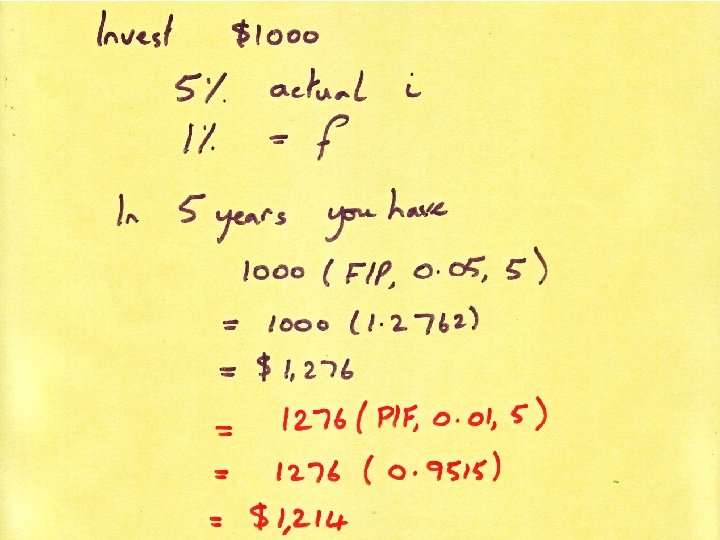 Invest $1000
5% actual i
1% = f
In 5 years you have
1000 (F/P, 0.05, 5)
= 1000 (1.2762)
= $1,276
= 1276 (P/F, 0.01, 5)
= 1276 (0.9515)
= $1,214